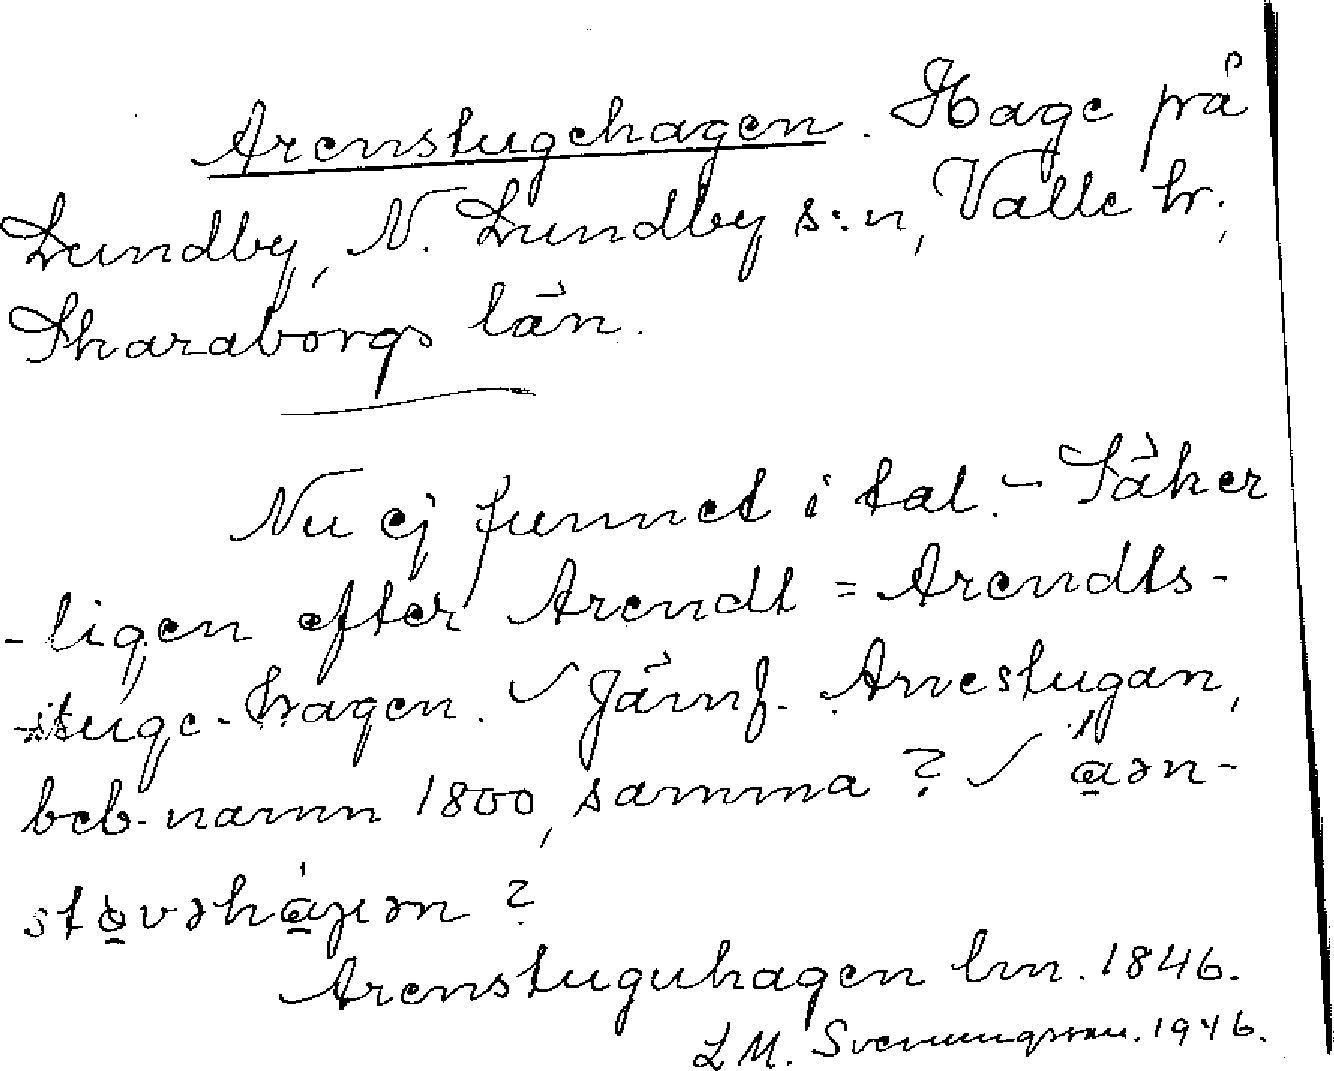 Arenstugehagen. Hage på
Lundby, N. Lundby s:n, Valle hr.,
Skaraborgs län.
Nu ej funnet i tal. - Säker
-ligen efter Arendt = Arendts-
-stuge-hagen. Jämf. Arvestugan,
beb-namn 1800, samma?
?
Arenstuguhagen lm. 1846.
L M. Svenungsson. 1946.